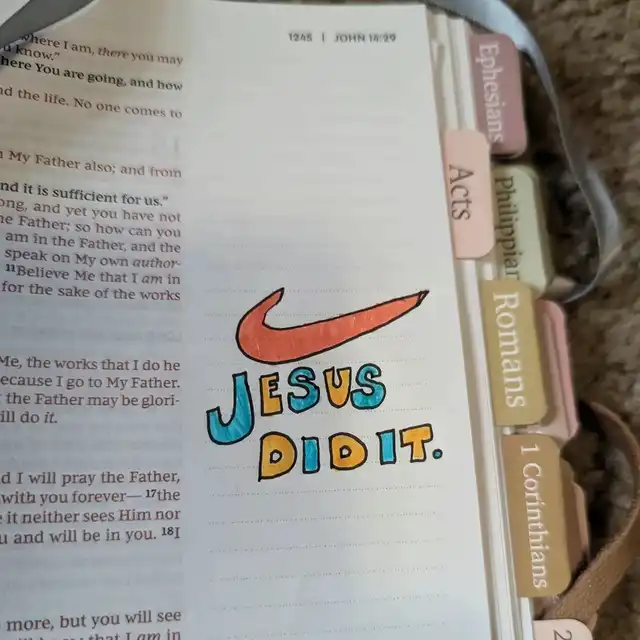 1245 | JOHN 14:29
where I am, there you may
know."
here You are going, and how
nd the life. No one comes to
My Father also; and from
nd it is sufficient for us."
ong, and yet you have not
he Father; so how can you
am in the Father, and the
speak on My own author-
11Believe Me that I am in
for the sake of the works
Me, the works that I do he
ecause I go to My Father.
the Father may be glori-
ill do it.
d I will pray the Father,
with you forever—17the
it neither sees Him nor
u and will be in you. 18I
more, but you will see
that I am in
JESUS
DID IT.
Ephesians
Acts
Philippian
Romans
1 Corinthians
2